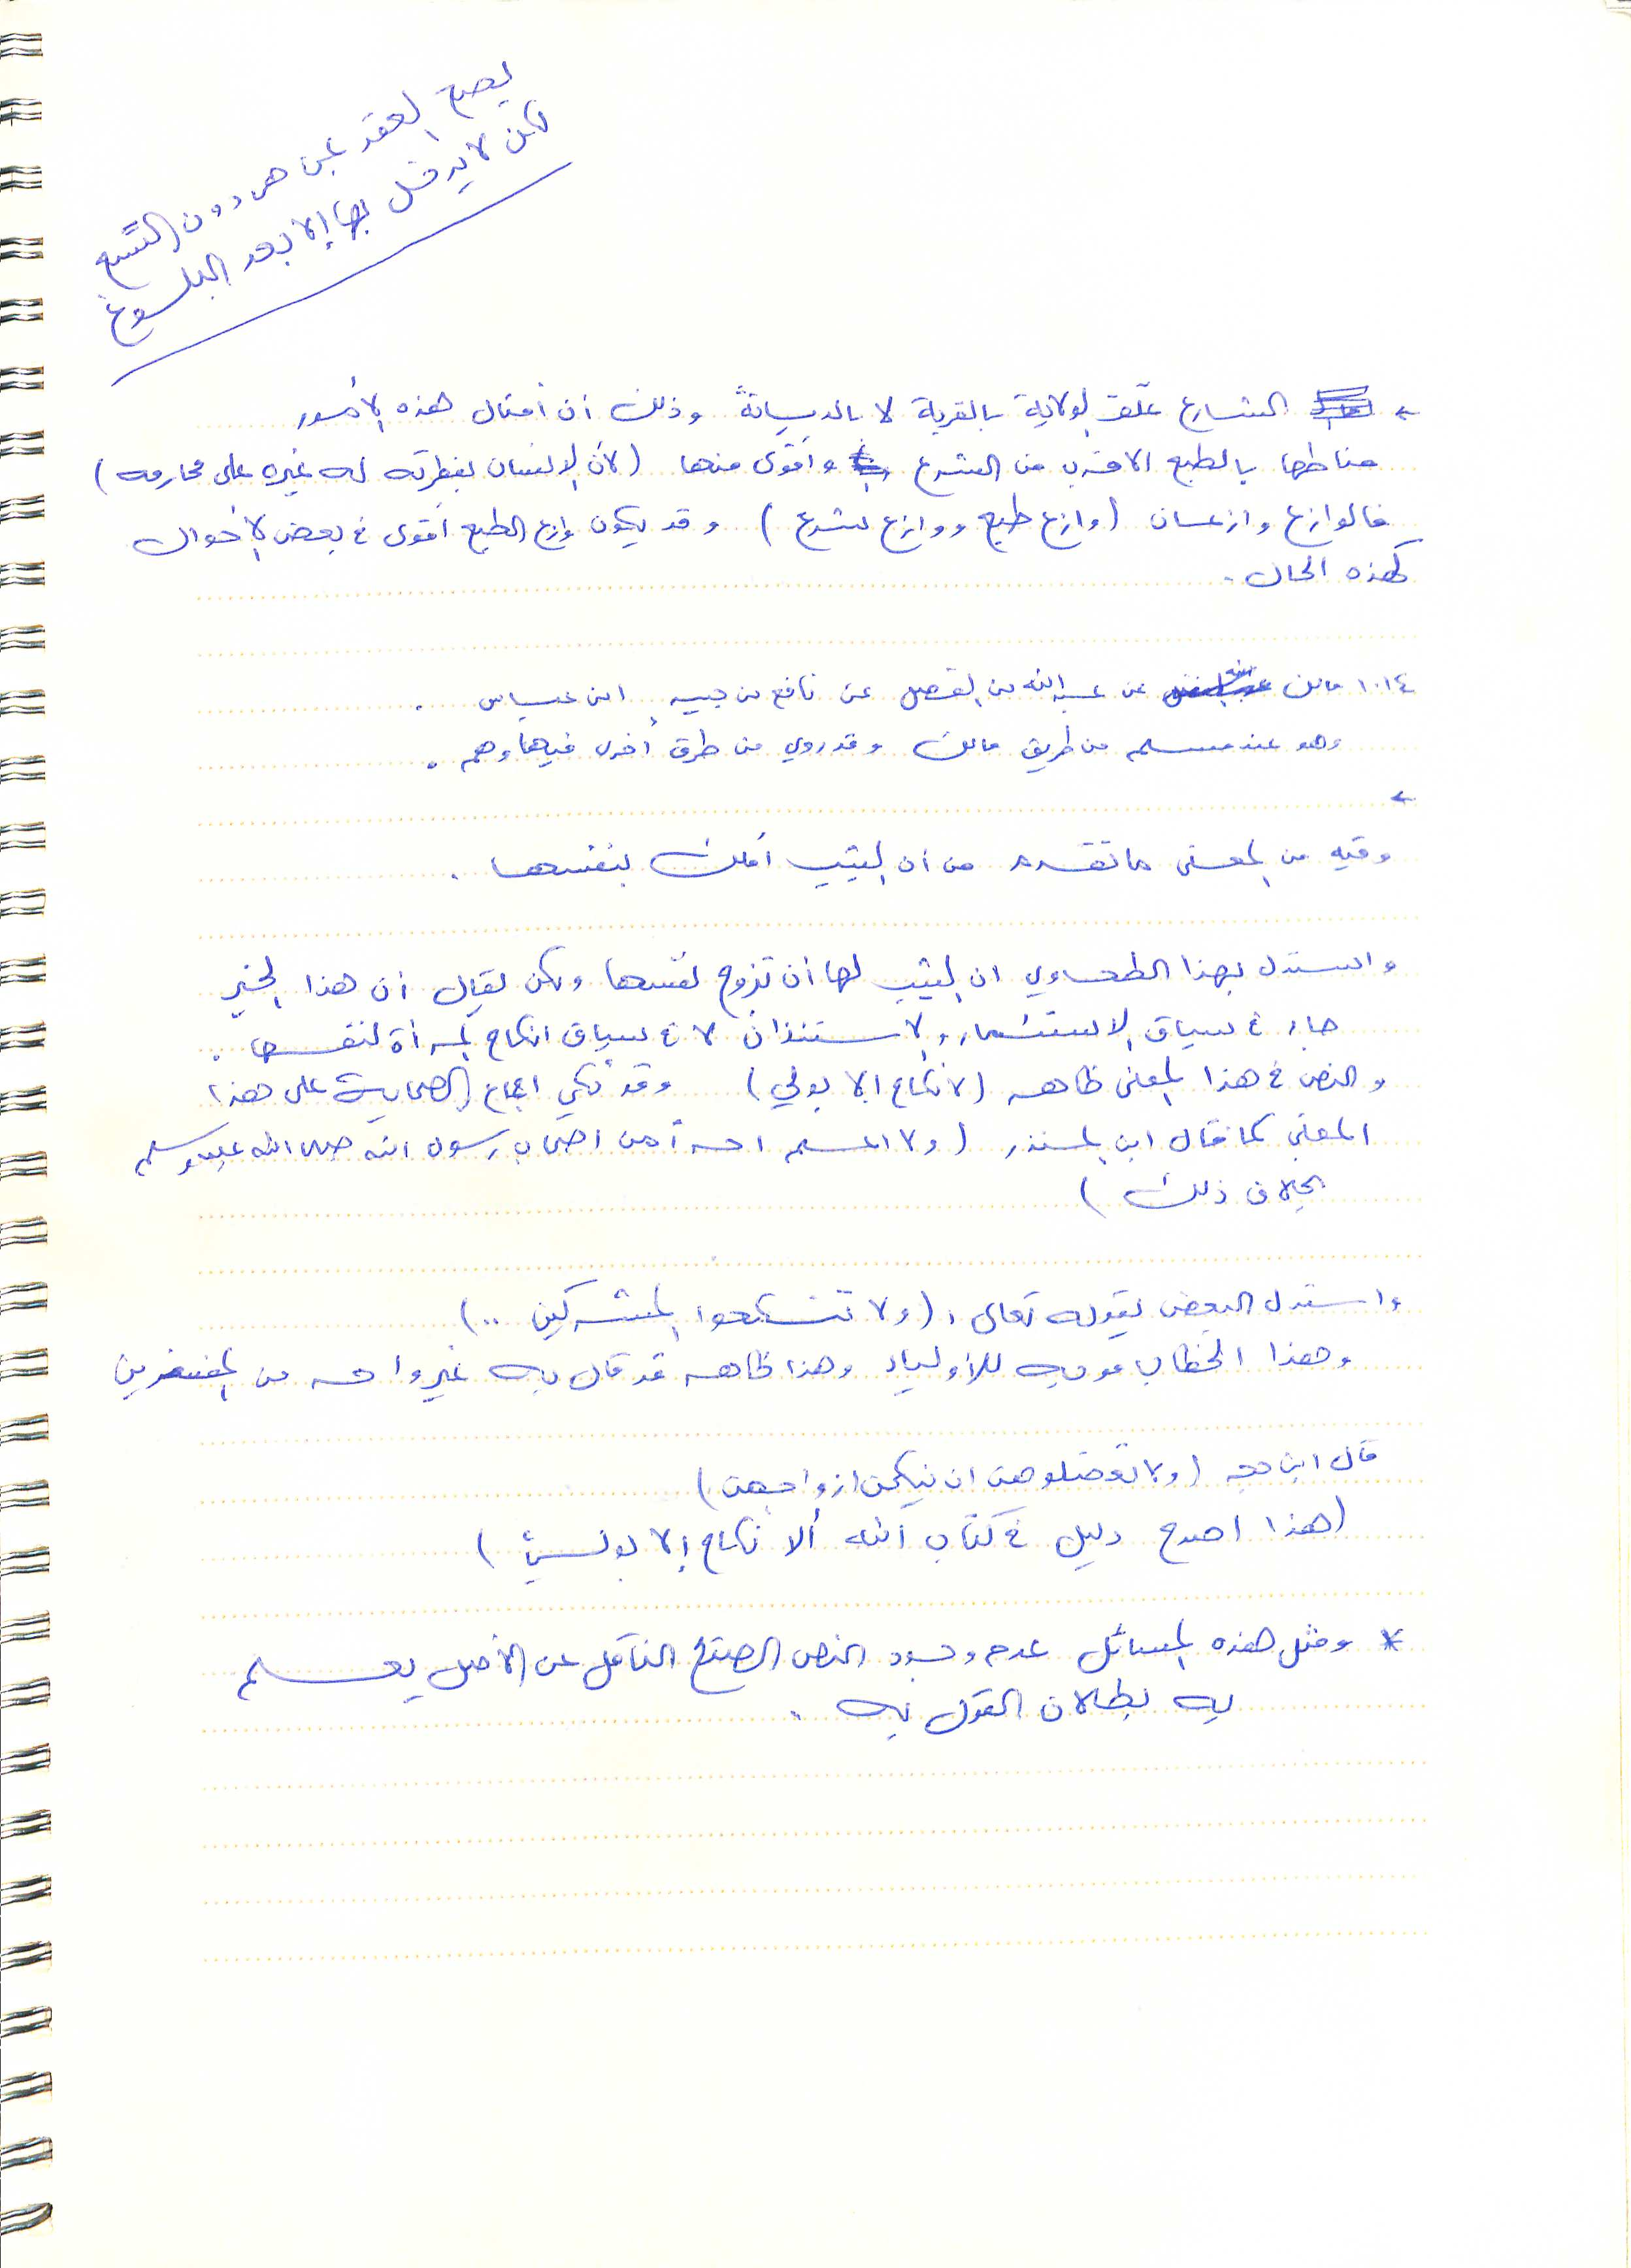 يصح العقد لمن هي دون التسع
لكن لا يدخل بها إلا بعد البلوغ
← الشارع علّق الولاية بالقربة لا بالديانة وذلك أن أمثال هذه الأمور
مناطها بالطبع الأقرب من الشرع وأقوى منها (لأن الإنسان بفطرته له غيره على محارمه)
فالوازع وازعان (وازع طبع ووازع شرع) وقد يكون وازع الطبع أقوى في بعض الأحوال
كهذه الحال.
١٠١٤ مالك عن عبد الله بن الفضل عن نافع بن جبير ابن عباس.
وهو عند مسلم من طريق مالك وقد روي من طرق أخرى فيها وهم.
←
وفيه من المعنى ما تقدم من أن الثيب أملك بنفسها.
واستدل بهذا الطحاوي ان الثيب لها أن تزوج نفسها ولكن يقال أن هذا الخبر
جاء في سياق الاستئمار والاستئذان لا في سياق انكاح المرأة لنفسها.
والنص في هذا المعنى ظاهر (لا نكاح إلا بولي) وقد حُكي اجماع الصحابة على هذا
المعنى كما قال ابن المنذر (ولا اعلم احداً من اصحاب رسول الله صلى الله عليه وسلم
بخلاف ذلك)
واستدل البعض بقوله تعالى: (ولا تنكحوا المشركين ..)
وهذا الخطاب موجه للأولياء وهذا ظاهر قد قال به غير واحد من المفسرين
قال ابن حجر (ولا تعضلوهن ان ينكحن ازواجهن)
(هذا اصرح دليل في كتاب الله ألا نكاح إلا بولي)
* ومثل هذه المسائل عدم وجود النص الناقل عن الأصل يعلم
به بطلان القول به.